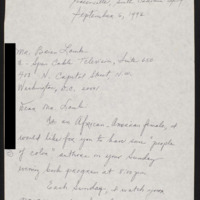 September 6, 1992
Mr. Brian Lamb
C-Span Cable Television, Suite 650
400 N. Capitol Street, N.W.
Washington, D.C. 20001
Dear Mr. Lamb:
As an African-American female, I
would like for you to have some "people
of color" authors on your Sunday
evening book program at 8:00 p.m.
Each Sunday, I watch your